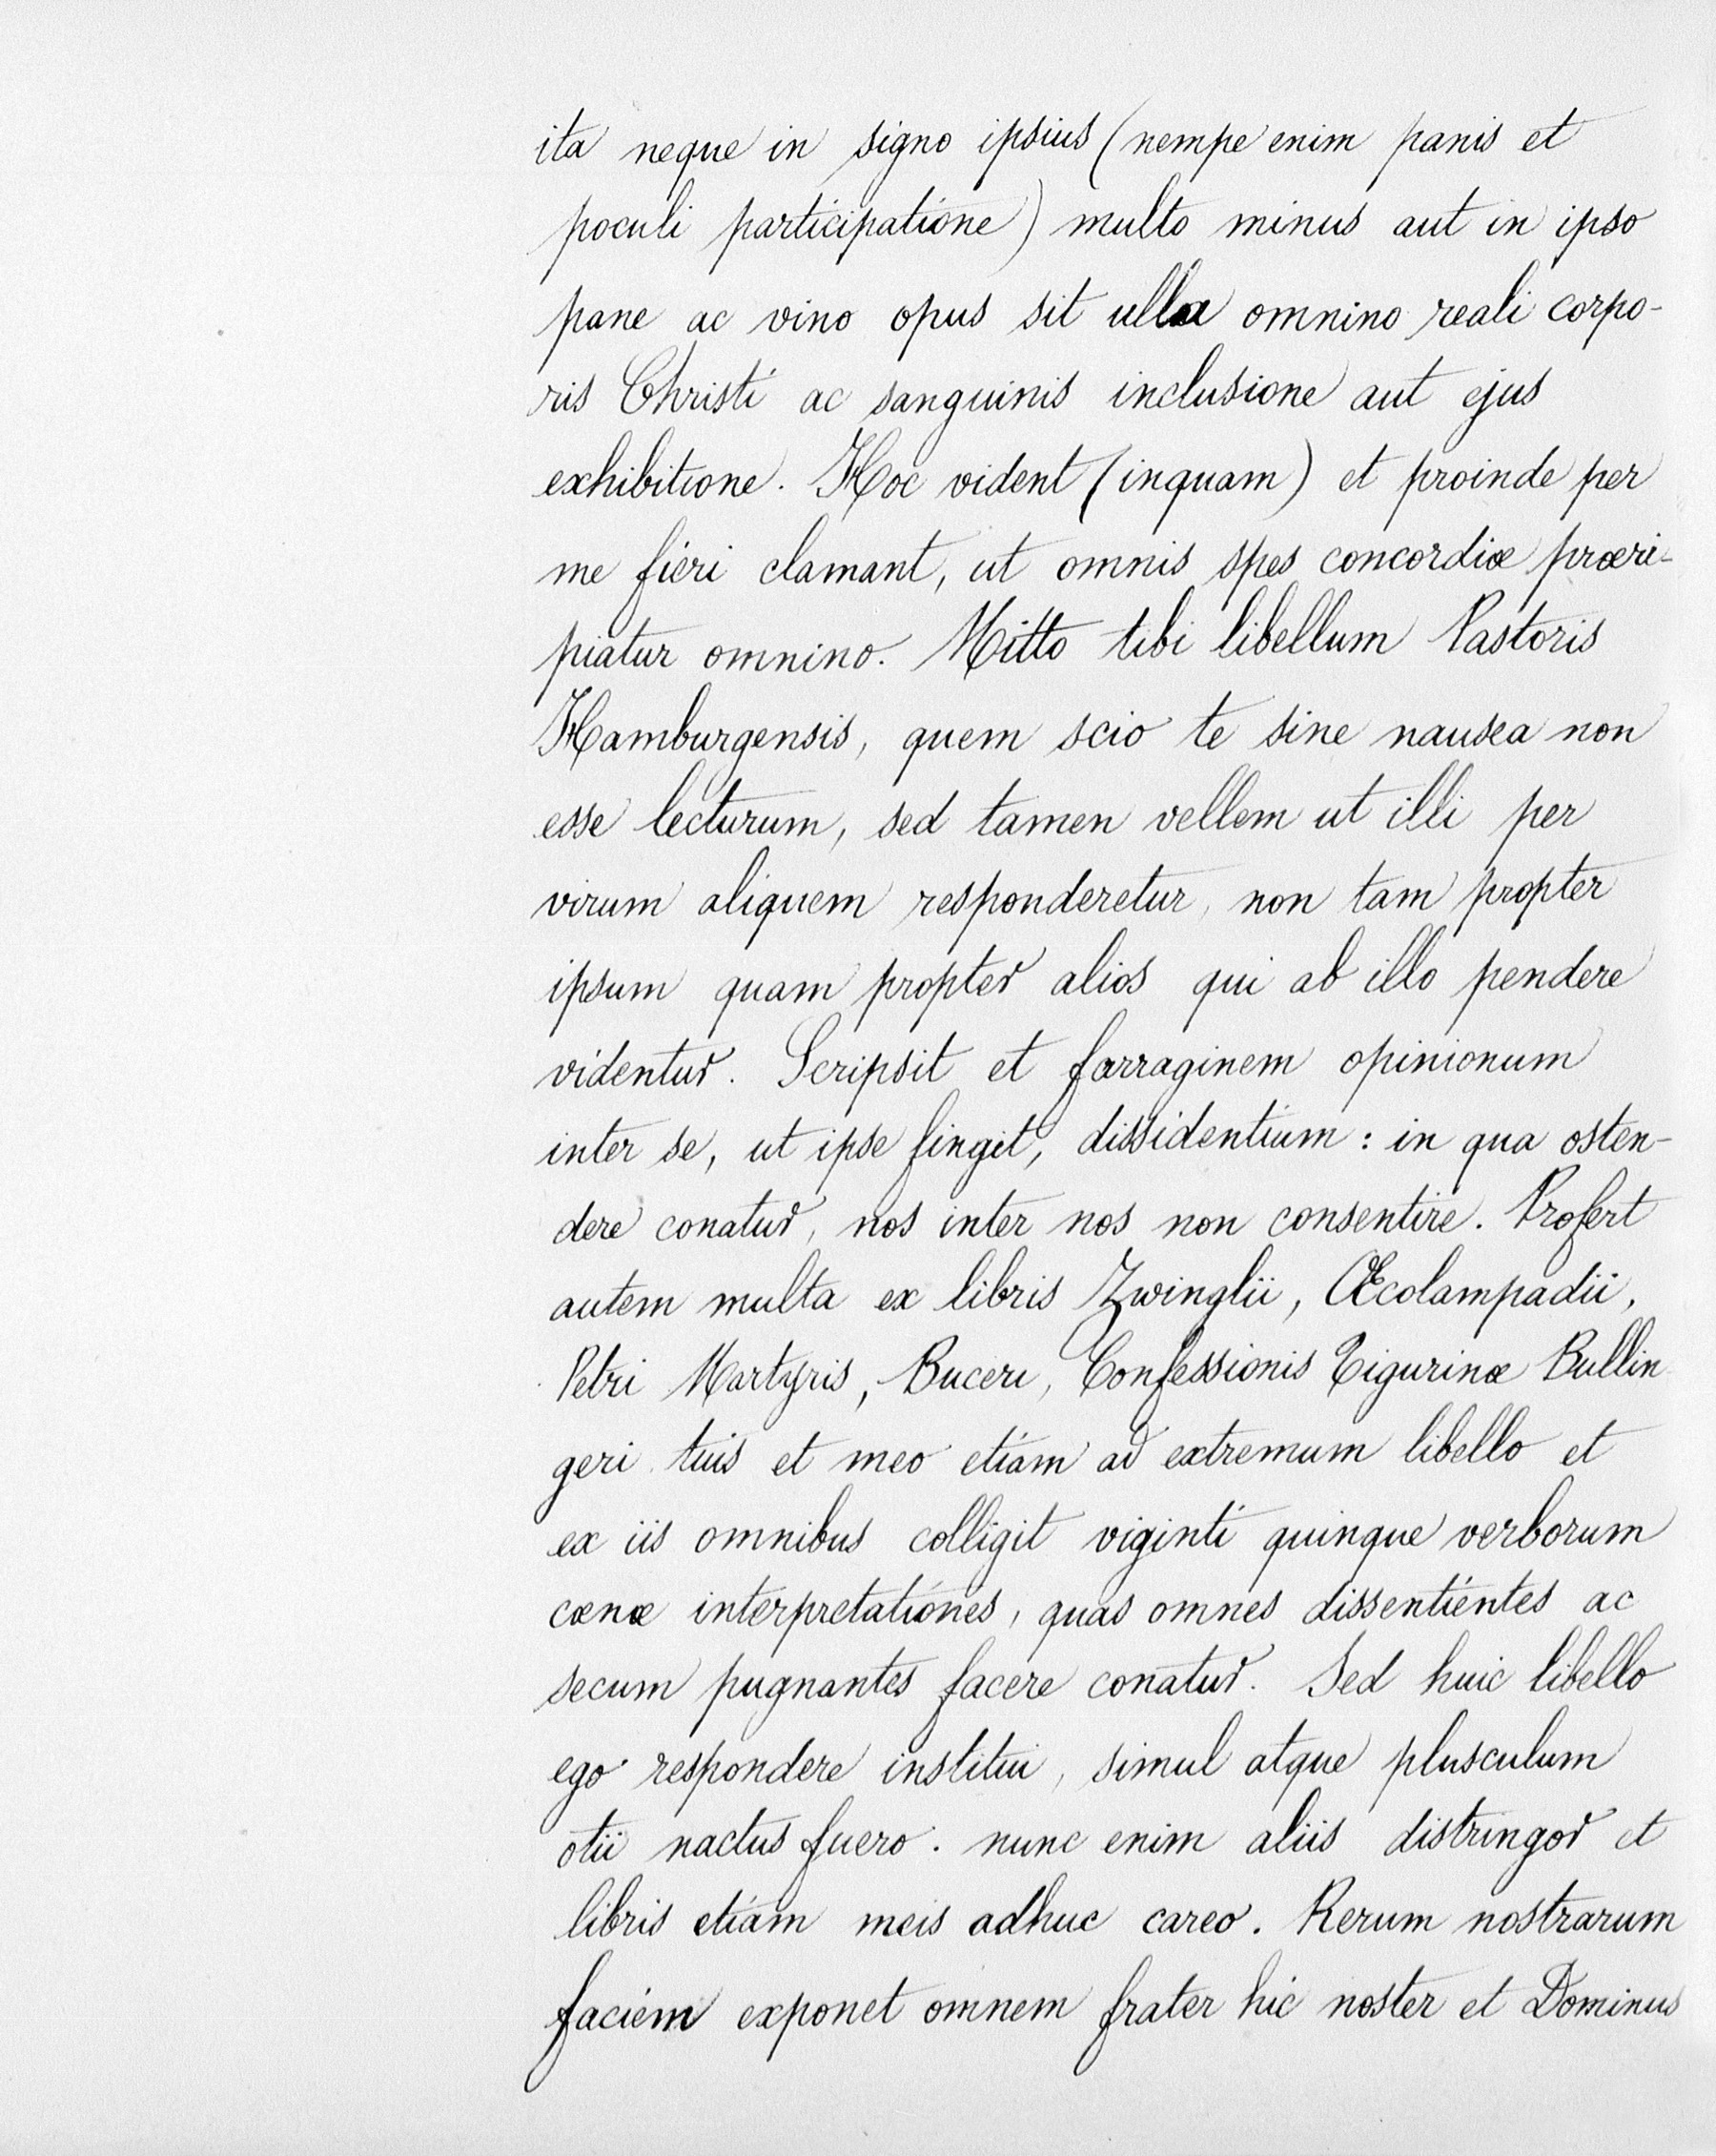 ita neque in signo ipsius (nempe enim panis et
poculi participatione) multo minus aut in ipso
pane ac vino opus sit ulla omnino reali corpo-
ris Christi ac sanguinis inclusione aut ejus
exhibitione. Hoc vident (inquam) et proinde per
me fieri clamant, ut omnis spes concordiæ præri-
piatur omnino. Mitto tibi libellum Pastoris
Hamburgensis, quem scio te sine nausea non
esse lecturum, sed tamen vellem ut illi per
virum aliquem responderetur, non tam propter
ipsum quam propter alios qui ab illo pendere
videntur. Scripsit et farraginem opinionum
inter se, ut ipse fingit, dissidentium : in qua osten-
dere conatur, nos inter nos non consentire. Profert
autem multa ex libris Zwinglii, Œcolampadii,
Petri Martyris, Buceri, Confessionis Tigurinæ Bullin
geri tuis et meo etiam ad extremum libello et
ex iis omnibus colligit viginti quinque verborum
cœnæ interpretationes, quas omnes dissentientes ac
secum pugnantes facere conatur. Sed huic libello
ego respondere institui, simul atque plusculum
otii nactus fuero. nunc enim aliis distringor et
libris etiam meis adhuc careo. Rerum nostrarum
faciem exponet omnem frater hic noster et Dominus